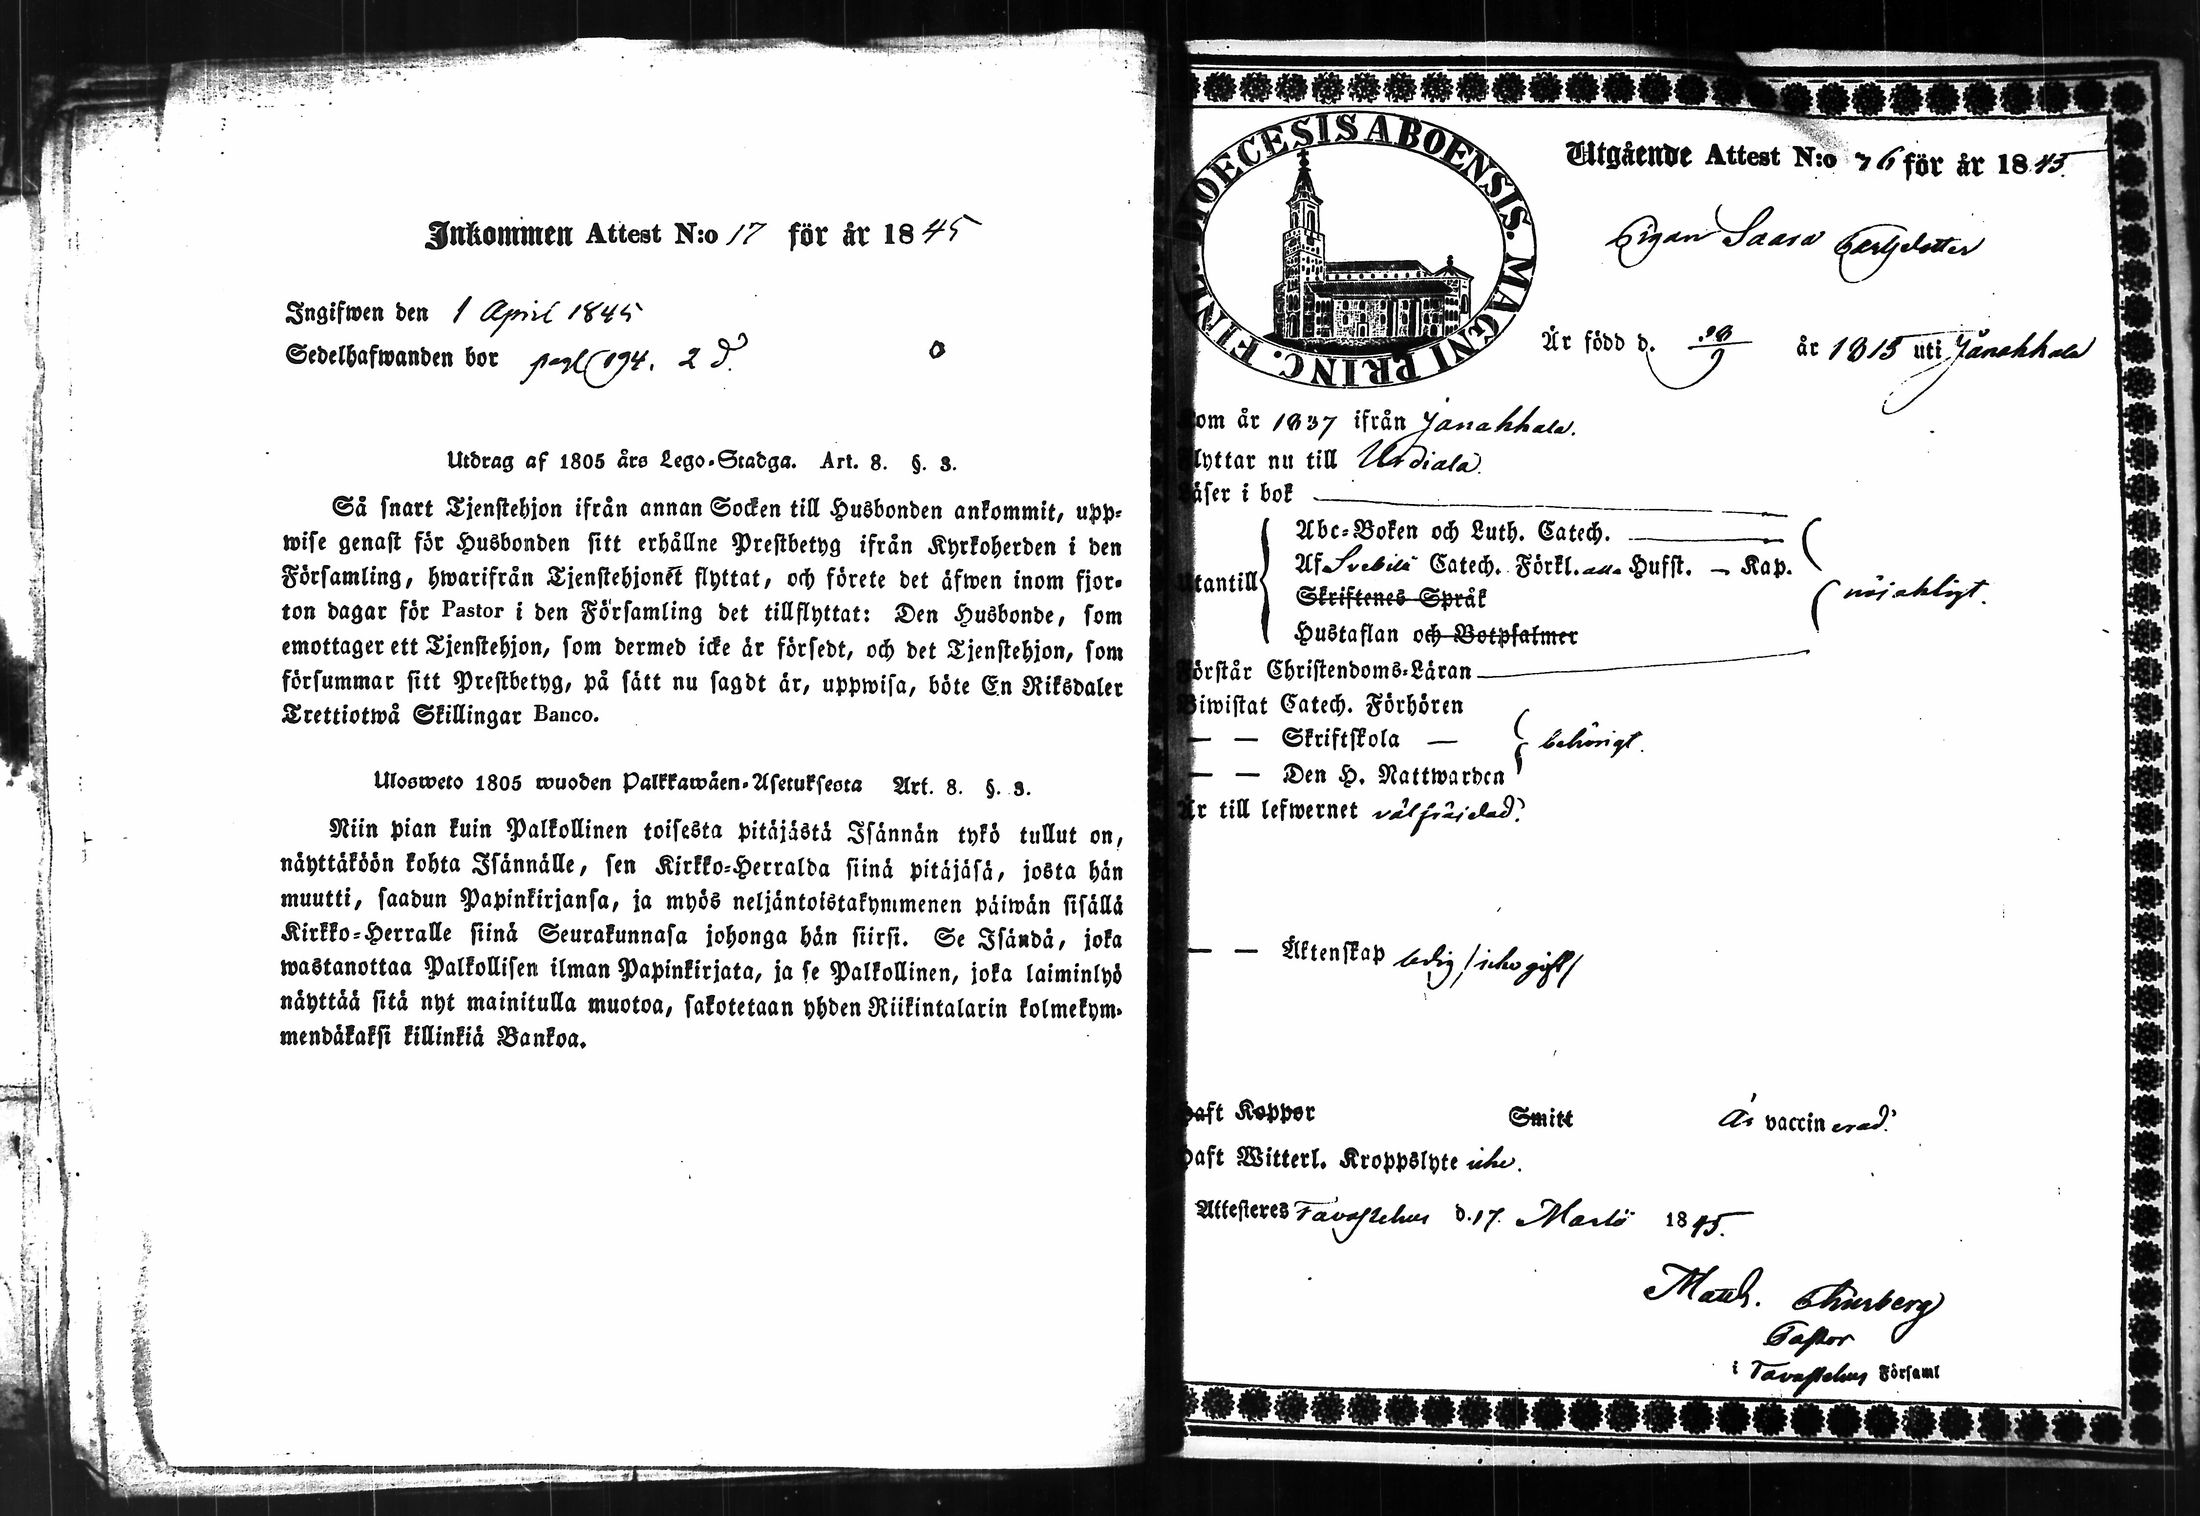 Inkommen Attest N:o 17 för år 1845
Ingifwen den 1 April 1845
Sedelhafwanden bor pag 194. 2 d.
0
Utdrag af 1805 års Lego-Stadga. Art. 8. §. 3.
Så snart Tjenstehjon ifrån annan Socken till Husbonden ankommit, upp-
wise genast för Husbonden sitt erhållne Prestbetyg ifrån Kyrkoherden i den
Församling, hwarifrån Tjenstehjonet flyttat, och förete det äfwen inom fjor-
ton dagar för Pastor i den Församling det tillflyttat: Den Husbonde, som
emottager ett Tjenstehjon, som dermed icke är försedt, och det Tjenstehjon, som
försummar sitt Prestbetyg, på sätt nu sagdt är, uppwisa, böte En Riksdaler
Trettiotwå Skillingar Banco.
Ulosweto 1805 wuoden Palkkawäen-Asetuksesta Art. 8. §. 3.
Niin pian kuin Palkollinen toisesta pitäjästä Isännän tykö tullut on,
näyttäköön kohta Isännälle, sen Kirkko-Herralda siinä pitäjäsä, josta hän
muutti, saadun Papinkirjansa, ja myös neljäntoistakymmenen päiwän sisällä
Kirkko-Herralle siinä Seurakunnasa johonga hän siirsi. Se Isändä, joka
wastanottaa Palkollisen ilman Papinkirjata, ja se Palkollinen, joka laiminlyö
näyttää sitä nyt mainitulla muotoa, sakotetaan yhden Riikintalarin kolmekym-
mendäkaksi killinkiä Bankoa.
DIOECESIS ABOENSIS. MAGNI PRINC. FINL.
Utgående Attest N:o 76 för år 1845.
Pigan Saara Carlsdotter
Är född d. 18/9 år 1815 uti Janakkala
Kom år 1837 ifrån Janakkala.
Flyttar nu till Urdiala
Läser i bok
Utantill
Abc-Boken och Luth. Catech.
Af Svebilii Catech. Förkl. alla Hufst. – Kap.
Skriftenes Språk
Hustaflan och Botpsalmer
nöjaktigt.
Förstår Christendoms-Läran
Biwistat Catech. Förhören
— — Skriftskola —
— — Den H. Nattwarden
behörigt.
Är till lefwernet välfräjdad.
— — Äktenskap ledig /icke gift/
Haft Koppor Smitt Är vaccinerad.
Haft Witterl. Kroppslyte icke.
Attesteres Tavastehus d. 17. Martii 1845.
Matth. Thurberg
Pastor
i Tavastehus Församl